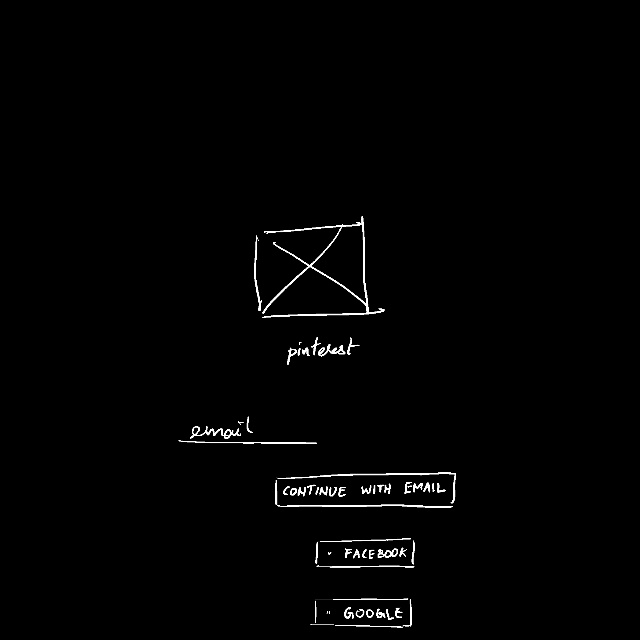 pinterest
email
CONTINUE WITH EMAIL
FACEBOOK
GOOGLE